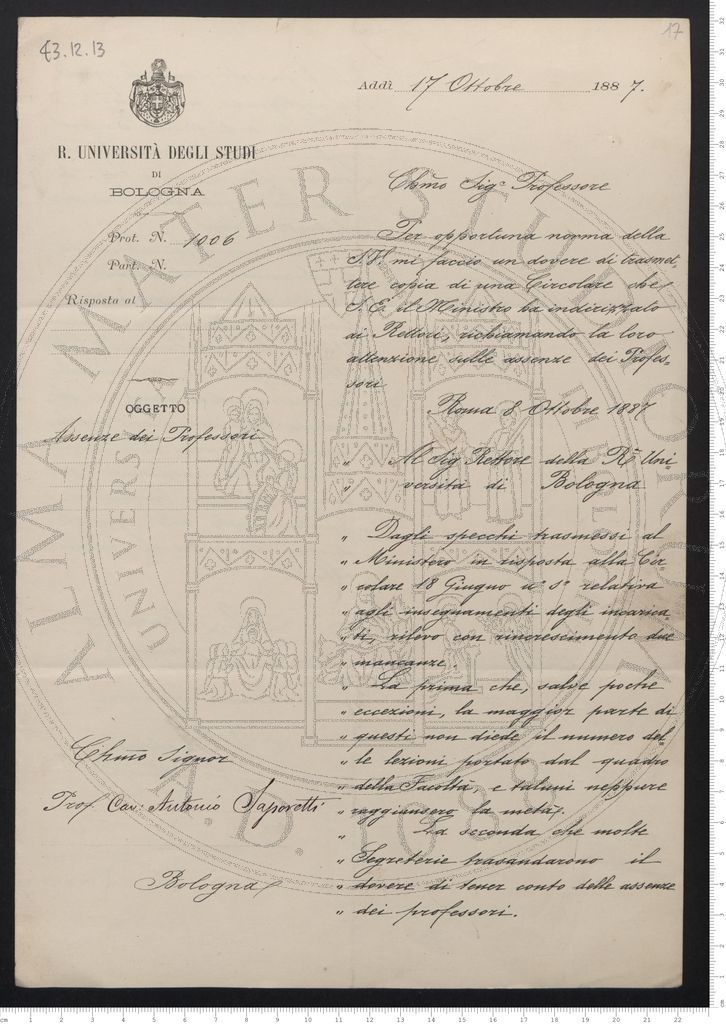 43.12.13
17
Addì 17 Ottobre 1887.
R. UNIVERSITÀ DEGLI STUDI
DI
BOLOGNA
Prot. N. 1006
Part. N.
Risposta al
OGGETTO
Assenze dei Professori
Chmo Sigr Professore
Per opportuna norma della
S.V. mi faccio un dovere di trasmet-
tere copia di una Circolare che
S. E. il Ministro ha indirizzato
ai Rettori, richiamando la loro
attenzione sulle assenze dei Profes-
sori
Roma 8 Ottobre 1887
" Al Sig Rettore della Ra Uni-
" versità di Bologna
" Dagli specchi trasmessi al
" Ministero in risposta alla Cir-
" colare 18 Giugno us ss relativa
" agli insegnamenti degli incarica-
" ti, rilevo con rincrescimento due
" mancanze.
" La prima che, salve poche
" eccezioni, la maggior parte di
" questi non diede il numero del-
" le lezioni portato dal quadro
" della Facoltà, e taluni neppure
" raggiunsero la metà.
" La seconda che molte
" Segreterie trasandarono il
" dovere di tener conto delle assenze
" dei professori.
Chmo Signor
Prof. Cav: Antonio Saporetti
Bologna
ALMA MATER STUDIORUM
A.D. 1088